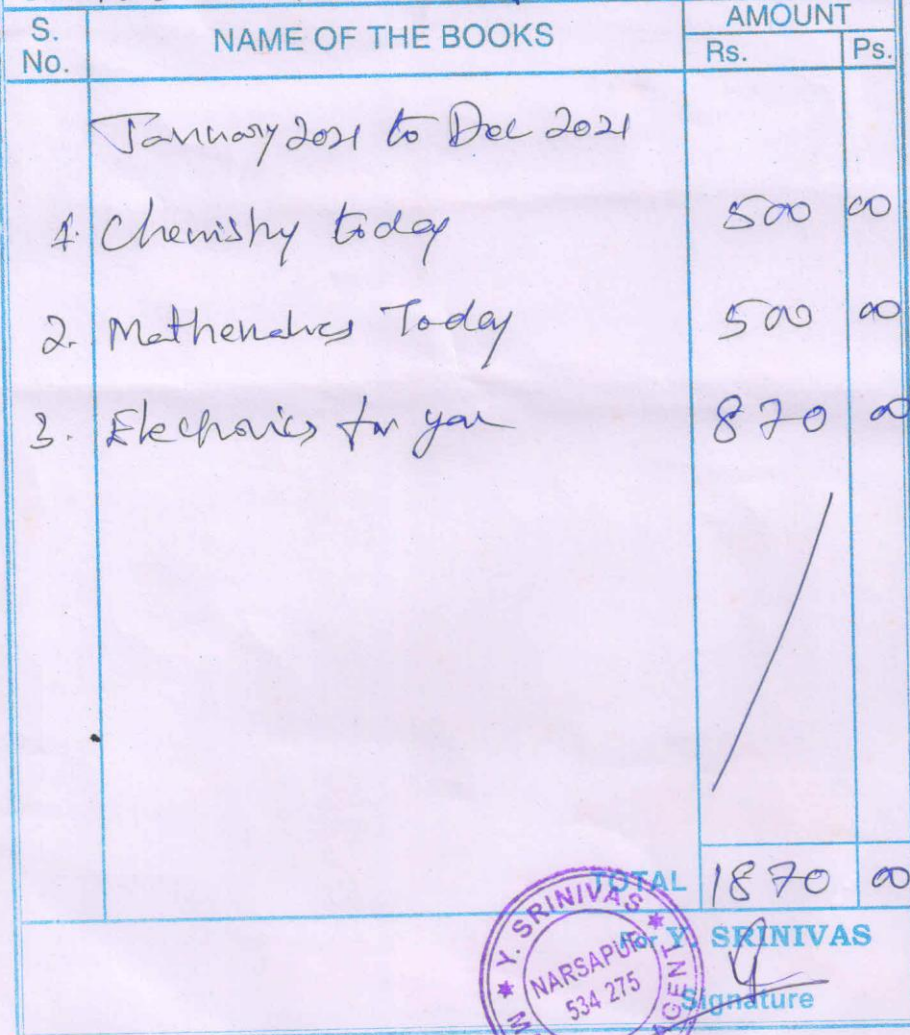 S. No. NAME OF THE BOOKS AMOUNT
Rs. Ps.
January 2021 to Dec 2021
1. Chemistry today 500 00
2. Mathematics Today 500 00
3. Electronics for you 870 00
TOTAL 1870 00
For Y. SRINIVAS
Signature
Y. SRINIVAS
NARSAPUR
534 275
AGENT